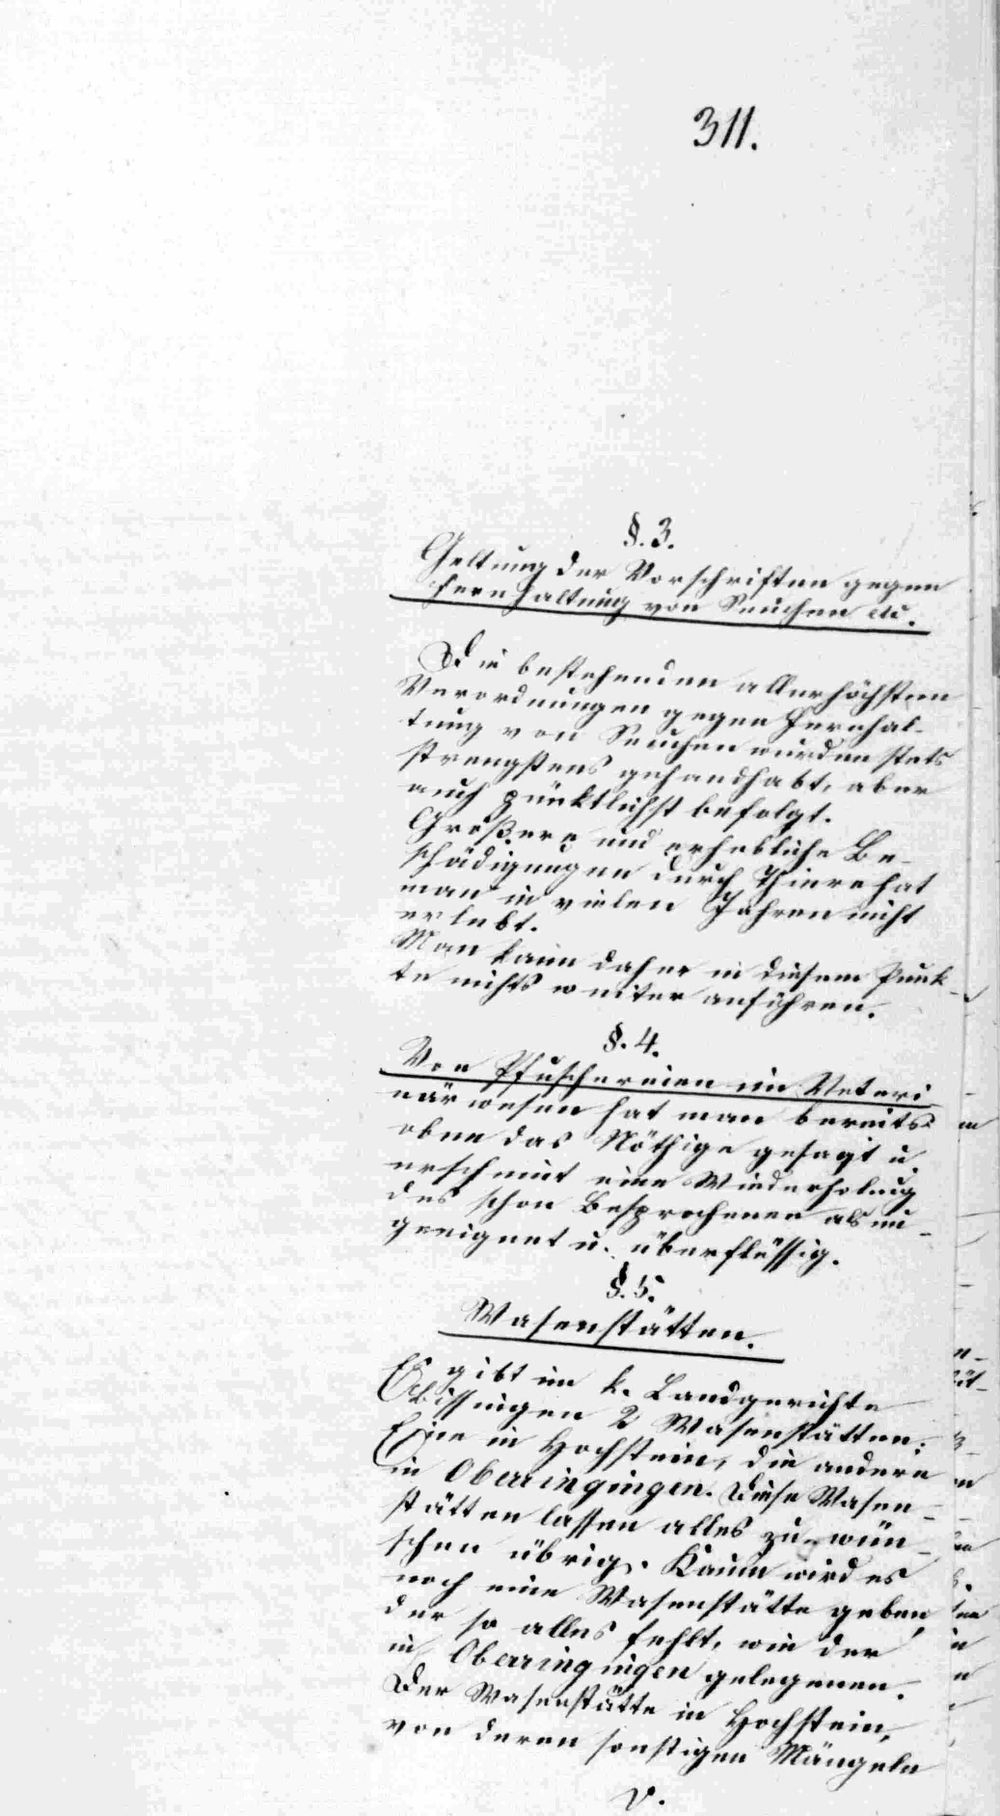 311.
§. 3.
Geltung der Vorschriften gegen
Fernhaltung von Seuchen etc.
Die bestehenden allerhöchsten
Verordnungen gegen Fernhal-
tung von Seuchen wurden stets
strengstens gehandhabt, aber
auch pünktlichst befolgt.
Größere und erhebliche Be-
schädigungen durch Thiere hat
man in vielen Jahren nicht
erlebt.
Man kann daher in diesem Punk-
te nichts weiter anführen.
§. 4.
Von Pfuschereien im Veteri
närwesen hat man bereits
oben das Nöthige gesagt u.
erscheint eine Wiederholung
des schon Besprochenen als un-
geeignet u. überflüssig.
§. 5.
Wasenstätten.
Es gibt im k. Landgerichte
Bissingen 2 Wasenstätten:
Eine in Hochstein, die andere
in Oberringingen. Diese Wasen-
stätten lassen alles zu wün-
schen übrig. Kaum wird es
noch eine Wasenstätte geben,
der so alles fehlt, wie der
in Oberringingen gelegenen.
Der Wasenstätte in Hochstein,
von deren sonstigen Mängeln